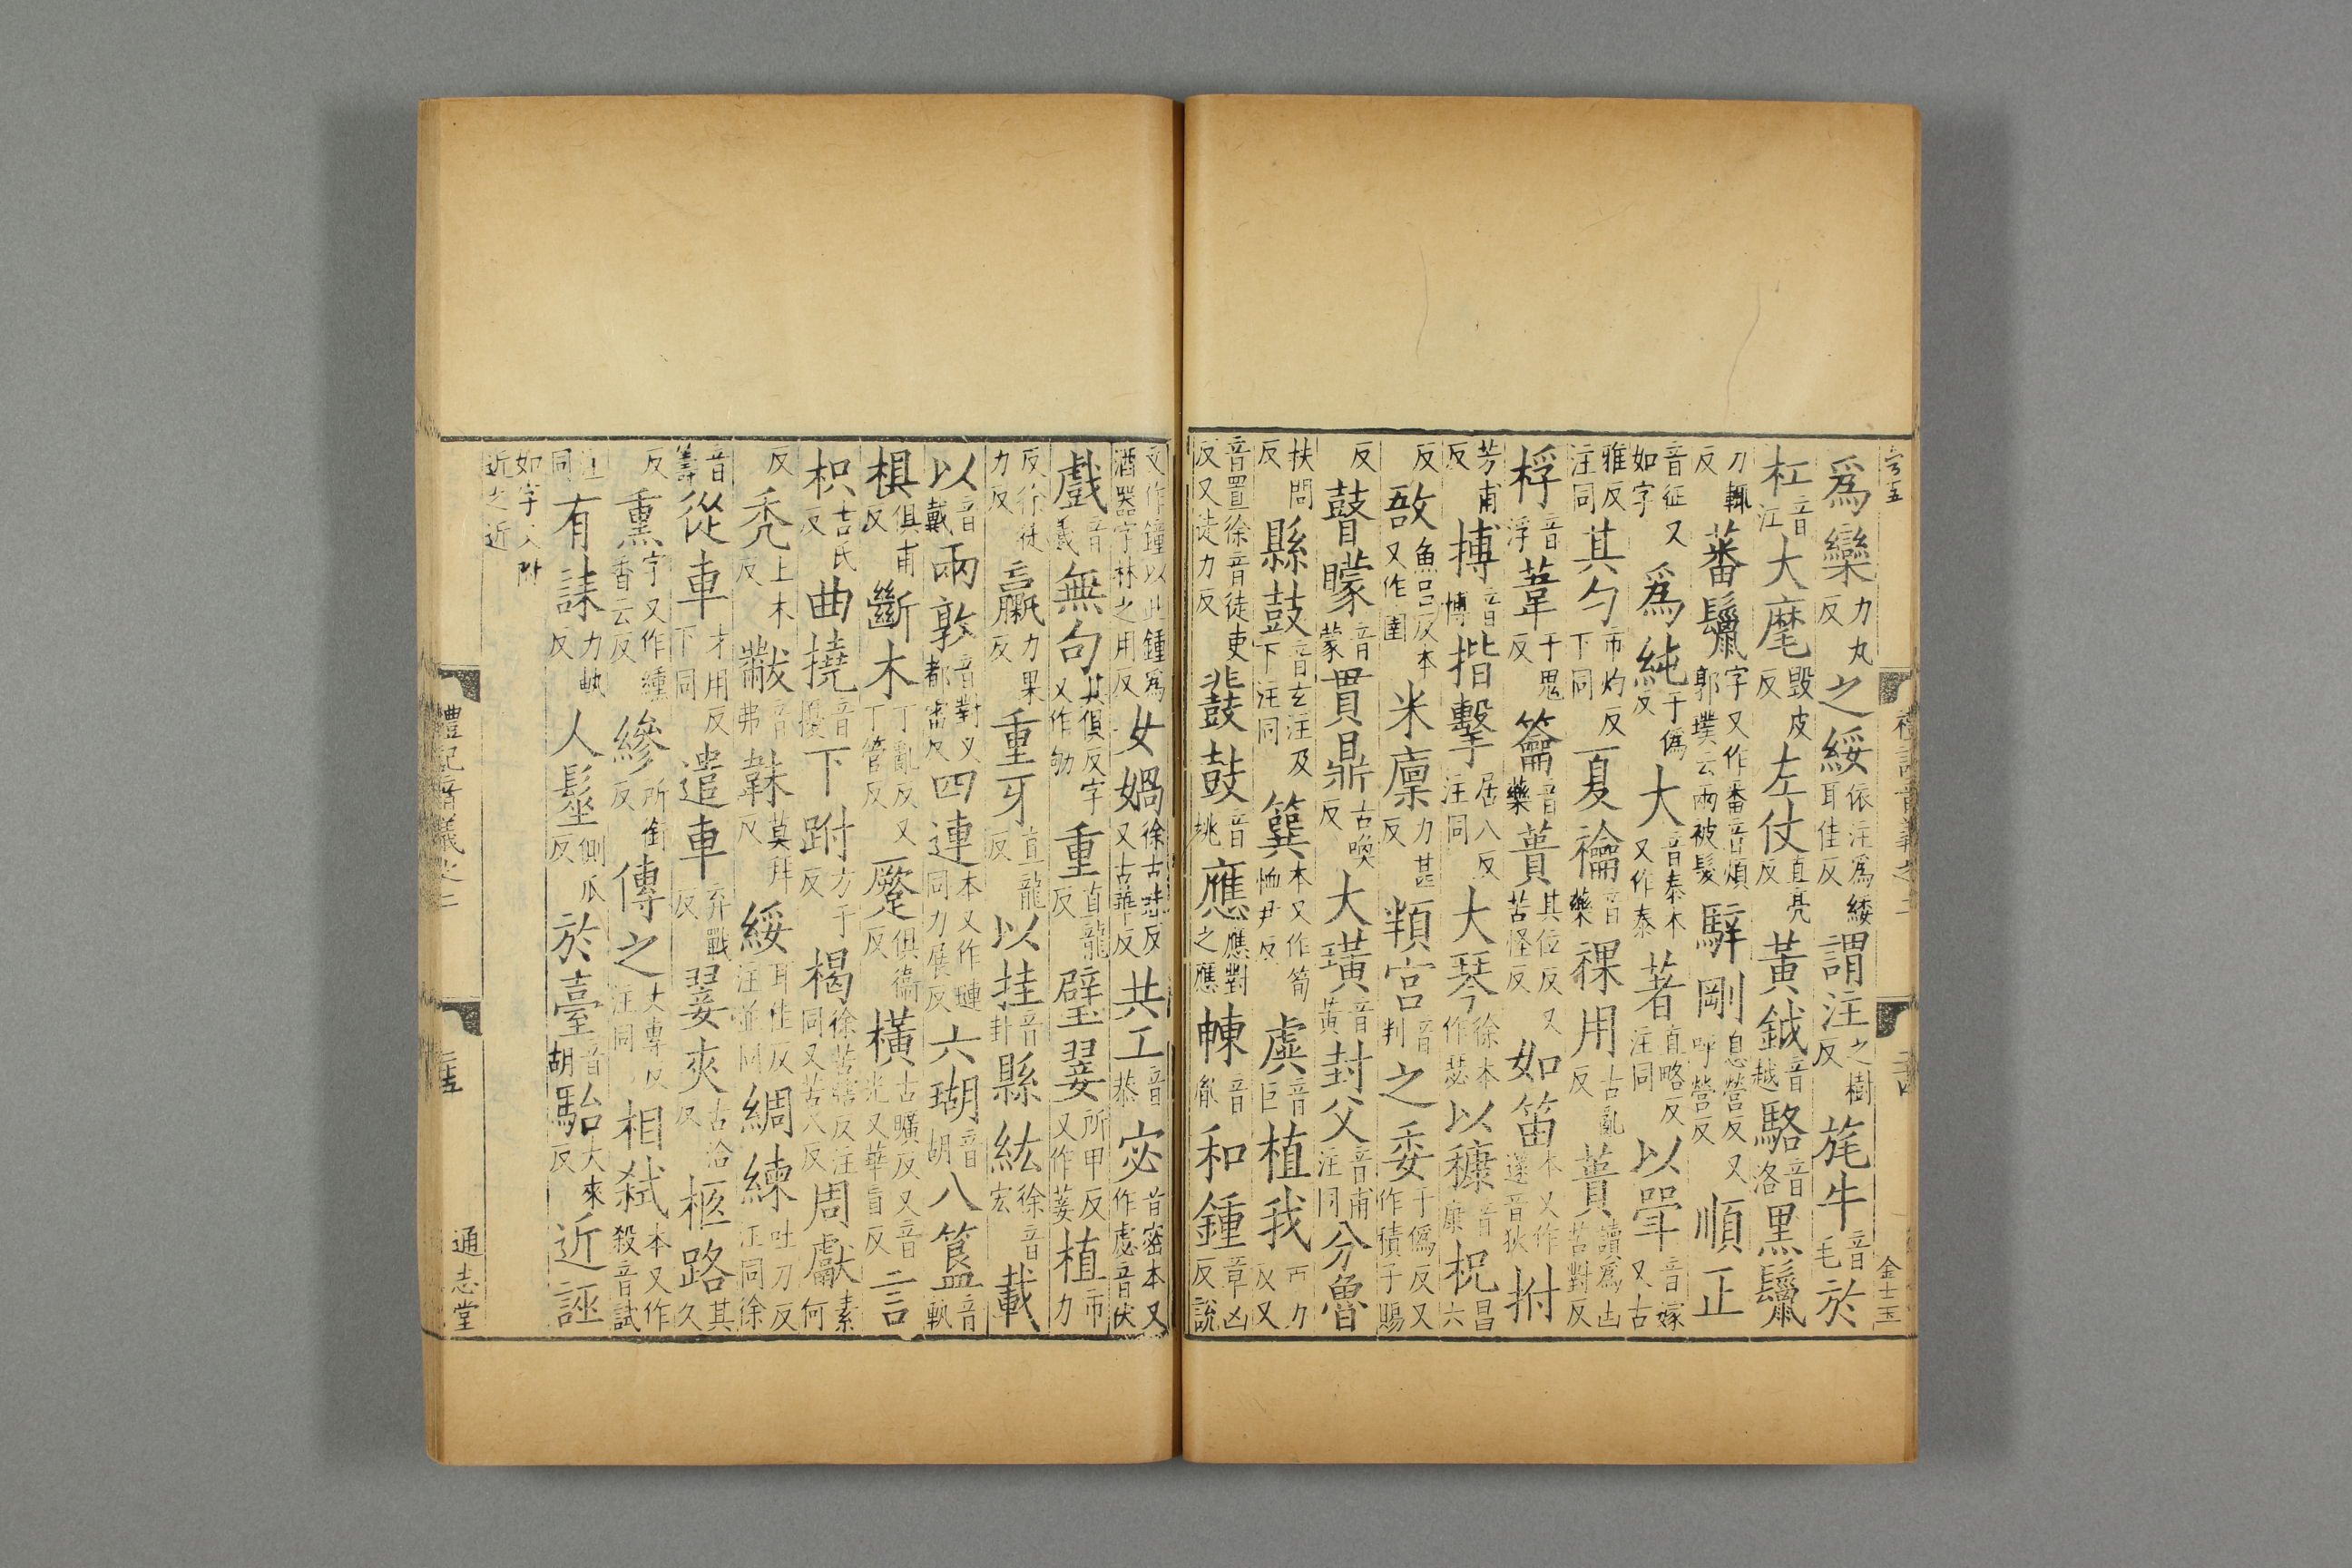 爲欒力丸反之綏依注爲緌耳佳反謂注之樹反旄牛音毛於
杠音江大麾毀皮反左仗直亮反黃鉞音越駱音洛黑鬣
力輒反蕃鬣字又作番音煩郭璞云兩被髮騂剛息營反又呼營反順正
音征又如字爲純于僞反大音泰本又作泰著直略反注同以斝音嫁又古
雅反注同其勺市灼反下同夏禴音藥祼用古亂反蕢讀爲凷苦對反
桴音浮葦于鬼反籥音藥蕢其位反又苦怪反如笛本又作篴音狄拊
芳甫反搏音博揩擊居八反注同大琴徐本作瑟以穅音康柷昌六
反敔魚呂反本又作圉米廩力甚反頖宮音判之委于僞反又作積子賜
反瞽矇音蒙貫鼎古喚反大璜音黃封父音甫注同分魯
扶問反縣鼓音玄注及下注同簨本又作筍恤尹反虡音巨植我市力反又
音置徐音徒吏反又徒力反鼗鼓音桃應應對之應朄音胤和鍾章凶反說
文作鐘以此鍾爲酒器字林之用反女媧徐古蛙反又古華反共工音恭宓音密本又作虙音伏
戲音羲無句其俱反字又作劬重直龍反璧翣所甲反又作菨植市力
反徐徒力反蠃力果反重牙直龍反以挂音卦縣紘徐音宏載
音戴以兩敦音對又都雷反四連本又作璉同力展反六瑚音胡八簋音軌
椇俱甫反斷木丁亂反又丁管反蹷俱衞反橫古曠反又音光又華盲反言
枳吉氏反曲撓音擾下跗方于反楬徐苦瞎反注同又苦八反周獻素何
反禿土木反黻音弗韎莫拜反綏耳佳反注並同綢練吐刀反注同徐
音籌從車才用反下同遣車弃戰反翣夾古洽反柩路其久
反熏字又作纁香云反縿所銜反傳之丈專反注同相弒本又作殺音試
注同有誄力軌反人髽側瓜反於臺音胡駘大來反近誣
如字又附近之近
禮記音義之二
二十五
通志堂
禮記音義之二
二十四
金士玉